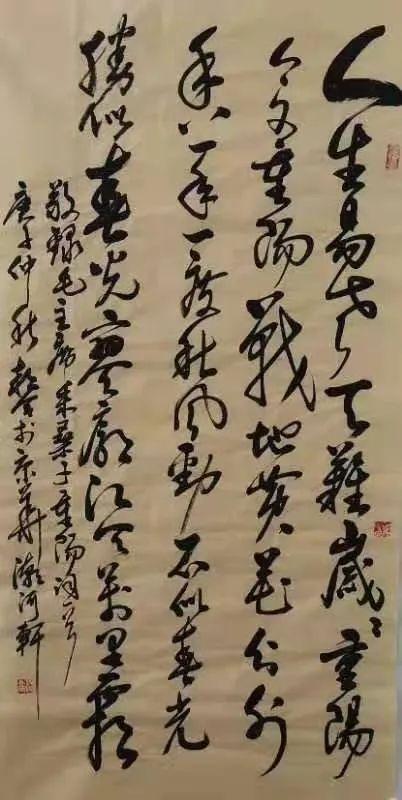 人生易老天難歲々重陽
今又重陽戰地黄花分外
香一年一度秋風勁不似春光
勝似春光寥廓江天萬里霜
敬録毛主席采桑子重陽词一首
庚子仲秋於京華潮河軒